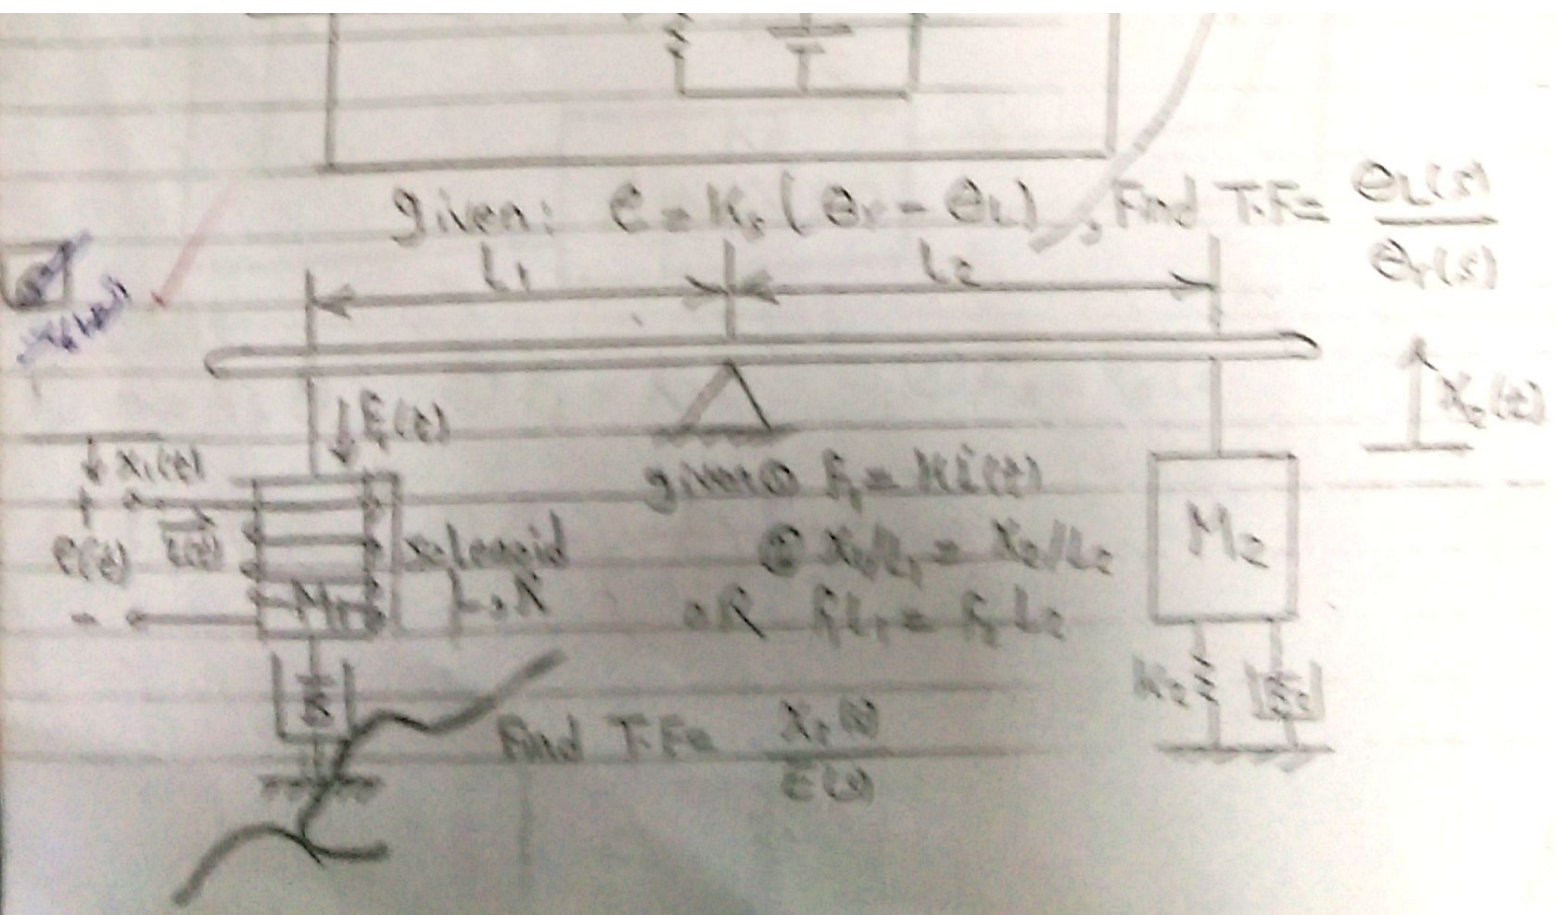 given: e = K₅ (θr - θL) , Find T.F = θL(s) / θr(s)
L1
L2
F₁(t)
x₁(t)
X₂(t)
+
e(t)
i(t)
-
solenoid
L, R
M1
given ① F₁ = Ki(t)
② X₁/L₁ = X₂/L₂
OR F₁L₁ = F₂L₂
M2
K2
B2
Find T.F = X₂(s) / E(s)